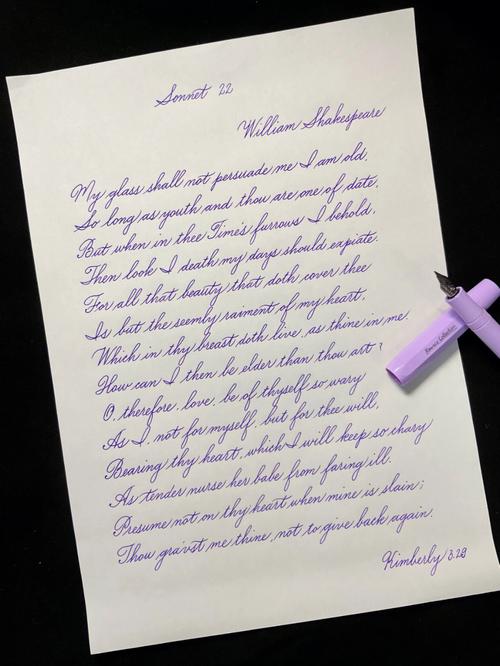 Sonnet 22
William Shakespeare
My glass shall not persuade me I am old,
So long as youth and thou are one of date,
But when in thee Time's furrows I behold,
Then look I death my days should expiate.
For all that beauty that doth cover thee
Is but the seemly raiment of my heart,
Which in thy breast doth live, as thine in me.
How can I then be elder than thou art?
O, therefore, love, be of thyself so wary
As I, not for myself, but for thee will,
Bearing thy heart, which I will keep so chary
As tender nurse her babe from faring ill.
Presume not on thy heart when mine is slain;
Thou grav'st me thine, not to give back again.
Kimberly 3.29